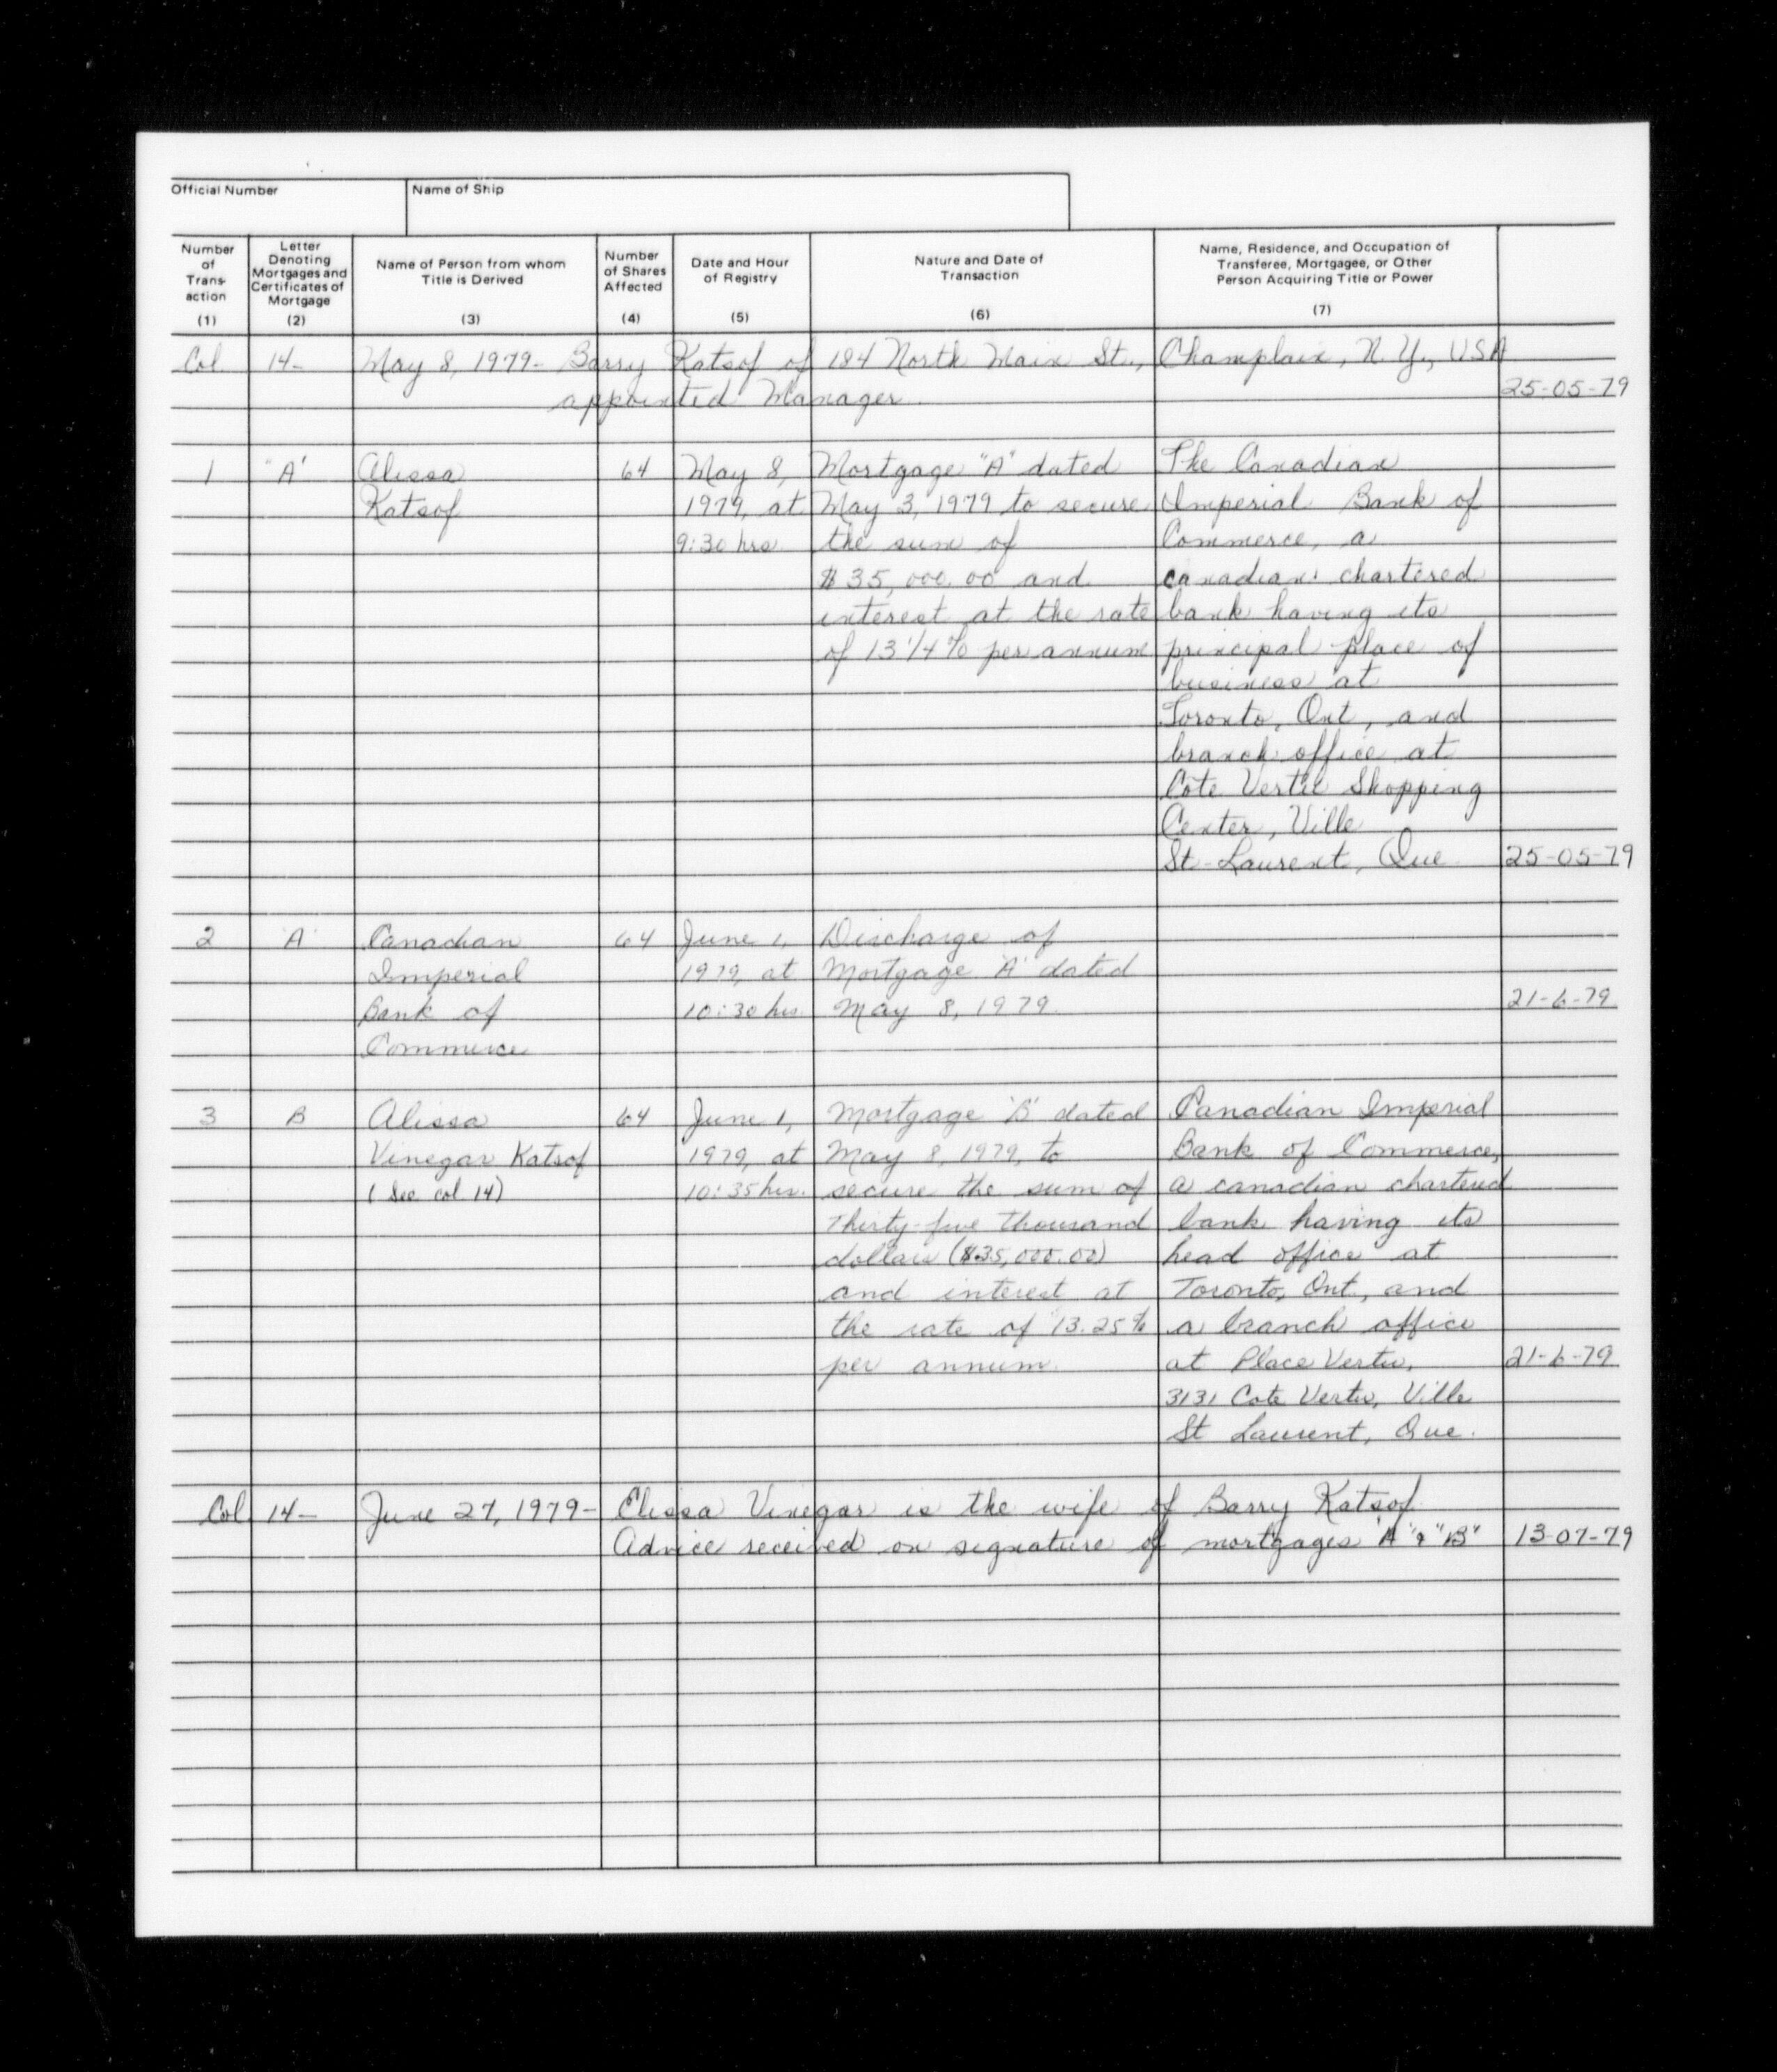 Official Number
Name of Ship
Number of Trans- action (1)
Letter Denoting Mortgages and Certificates of Mortgage (2)
Name of Person from whom Title is Derived (3)
Number of Shares Affected (4)
Date and Hour of Registry (5)
Nature and Date of Transaction (6)
Name, Residence, and Occupation of Transferee, Mortgagee, or Other Person Acquiring Title or Power (7)
Col. 14- May 8, 1979- Barry Katsof of 184 North Main St., Champlain, N.Y., USA
appointed Manager. 25-05-79
1 "A" Alissa 64 May 8, Mortgage "A" dated The Canadian
Katsof 1979, at May 3, 1979 to secure Imperial Bank of
9:30 hrs the sum of Commerce, a
$35,000.00 and canadian chartered
interest at the rate bank having its
of 13 1/4% per annum principal place of
business at
Toronto, Ont, and
branch office at
Cote Vertu Shopping
Center, Ville
St-Laurent, Que. 25-05-79
2 'A' Canadian 64 June 1, Discharge of
Imperial 1979, at Mortgage 'A' dated
Bank of 10:30 hrs. May 8, 1979. 21-6-79
Commerce
3 B Alissa 64 June 1, Mortgage 'B' dated Canadian Imperial
Vinegar Katsof 1979, at May 8, 1979, to Bank of Commerce,
(See col 14) 10:35 hrs. secure the sum of a canadian chartered
Thirty-five thousand bank having its
dollars ($35,000.00) head office at
and interest at Toronto, Ont., and
the rate of 13.25% a branch office
per annum. at Place Vertu, 21-6-79
3131 Cote Vertu, Ville
St Laurent, Que.
Col. 14- June 27, 1979- Elissa Vinegar is the wife of Barry Katsof
Advice received on signature of mortgages "A" & "B" 13-07-79